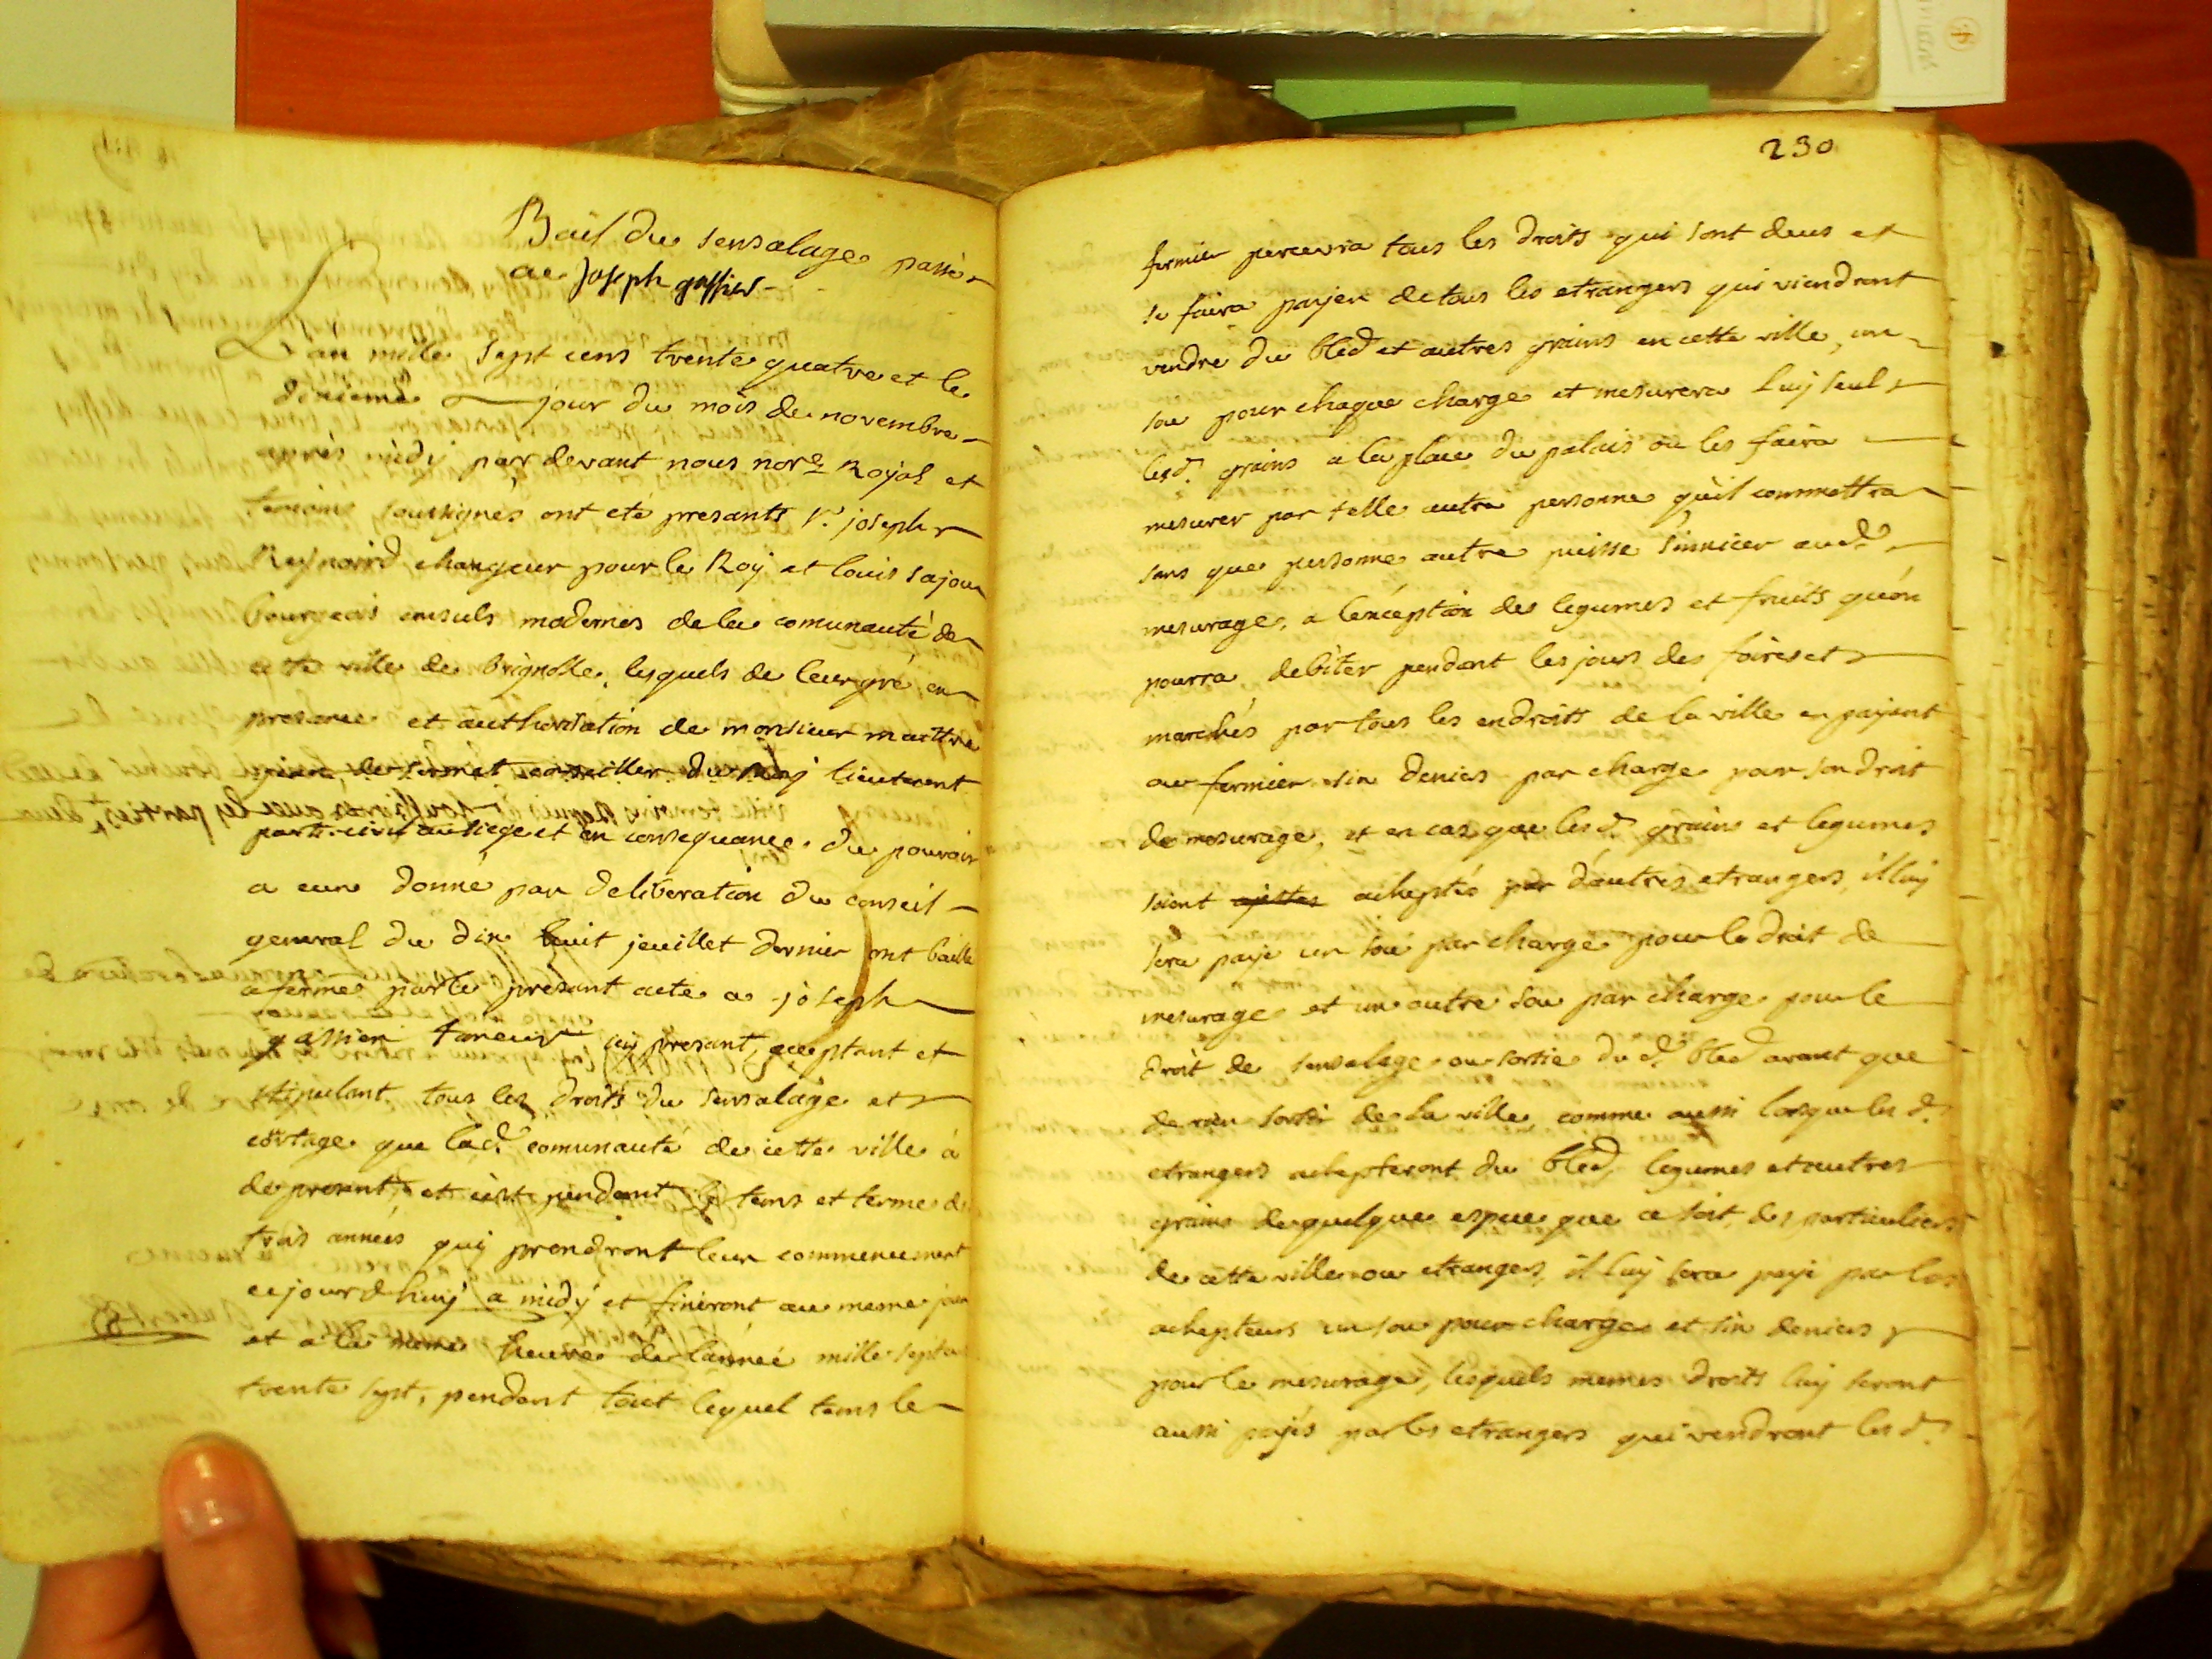 Bail du sensalage passé
a Joseph gassier
L'an mille sept cens trente quatre et le
dixieme jour du mois de novembre
après midÿ par devant nous nore Royal et
temoins soussignés ont eté presants sr. joseph
Reynoird changeur pour le Roÿ et louis sajou
bourgeois consuls modernes de la comunauté de
cette ville de brignolle, lesquels de leur gré en
presance et authorisation de monsieur maittre
de conseiller du Roÿ lieutenent
partculier au siege et en consequance du pouvoir
a eux donné par deliberation du conseil
general du dix huit jeuillet dernier ont baillé
a ferme par le presant acte a joseph
gassier taneur icÿ presant, acceptant et
stipulant tous les droits du sensalage et
cortage que lad. comunauté de cette ville a
de present, et c'est pendant le tems et terme de
trois années quÿ prendront leur commencement
cejourdhuÿ a midÿ et finiront au meme jour
et a la meme heure de lannée mille sept cens
trente sept, pendent tout lequel tems le
230
fermier percevra tous les droits qui sont deus et
se faira payer de tous les etrangers qui viendront
vendre du bled et autres grains en cette ville, un
sou pour chaque charge et mesurera luÿ seul
lesd. grains a la place du palais ou les faira
mesurer par telle autre personne qu'il commettra
sans que personne autre puisse s'inmicer aud.
mesurage, a l'exception des legumes et fruits qu'on
pourra debiter pendent les jours des foires et
marchés par tous les endroits de la ville en payant
au fermier six deniers par charge pour son droit
de mesurage, et en cas que lesd. grains et legumes
soient acheptés par d'autres etrangers, il luÿ
sera payé un sou par charge pour le droit de
mesurage et un autre sou par charge pour le
droit de sensalage ou sortie du d. bled avant que
de rien sortir de la ville, comme aussi lorsque les d.
etrangers achepteront du bled, legumes et autres
grains de quelque espece que ce soit, des particuliers
de cette ville ou etrangers, il luÿ sera payé par les
achepteurs un sou pour charge et six deniers
pour le mesurage, lesquels memes droits luÿ seront
aussi payés par les etrangers qui vendront les d.